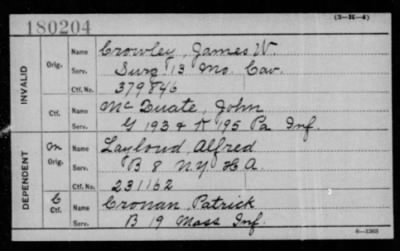 180204
(3-K-4)
INVALID
Orig.
Name Crowley, James W.
Serv. Surg 13 Mo. Cav.
Ctf. No. 379846
Ctf.
Name McQuate, John
Serv. G 193 & K 195 Pa Inf.
DEPENDENT
On
Orig.
Name Layloud, Alfred
Serv. B 8 N.Y. H A.
Ctf. No. 231162
C
Ctf.
Name Cronan, Patrick
Serv. B 19 Mass Inf.